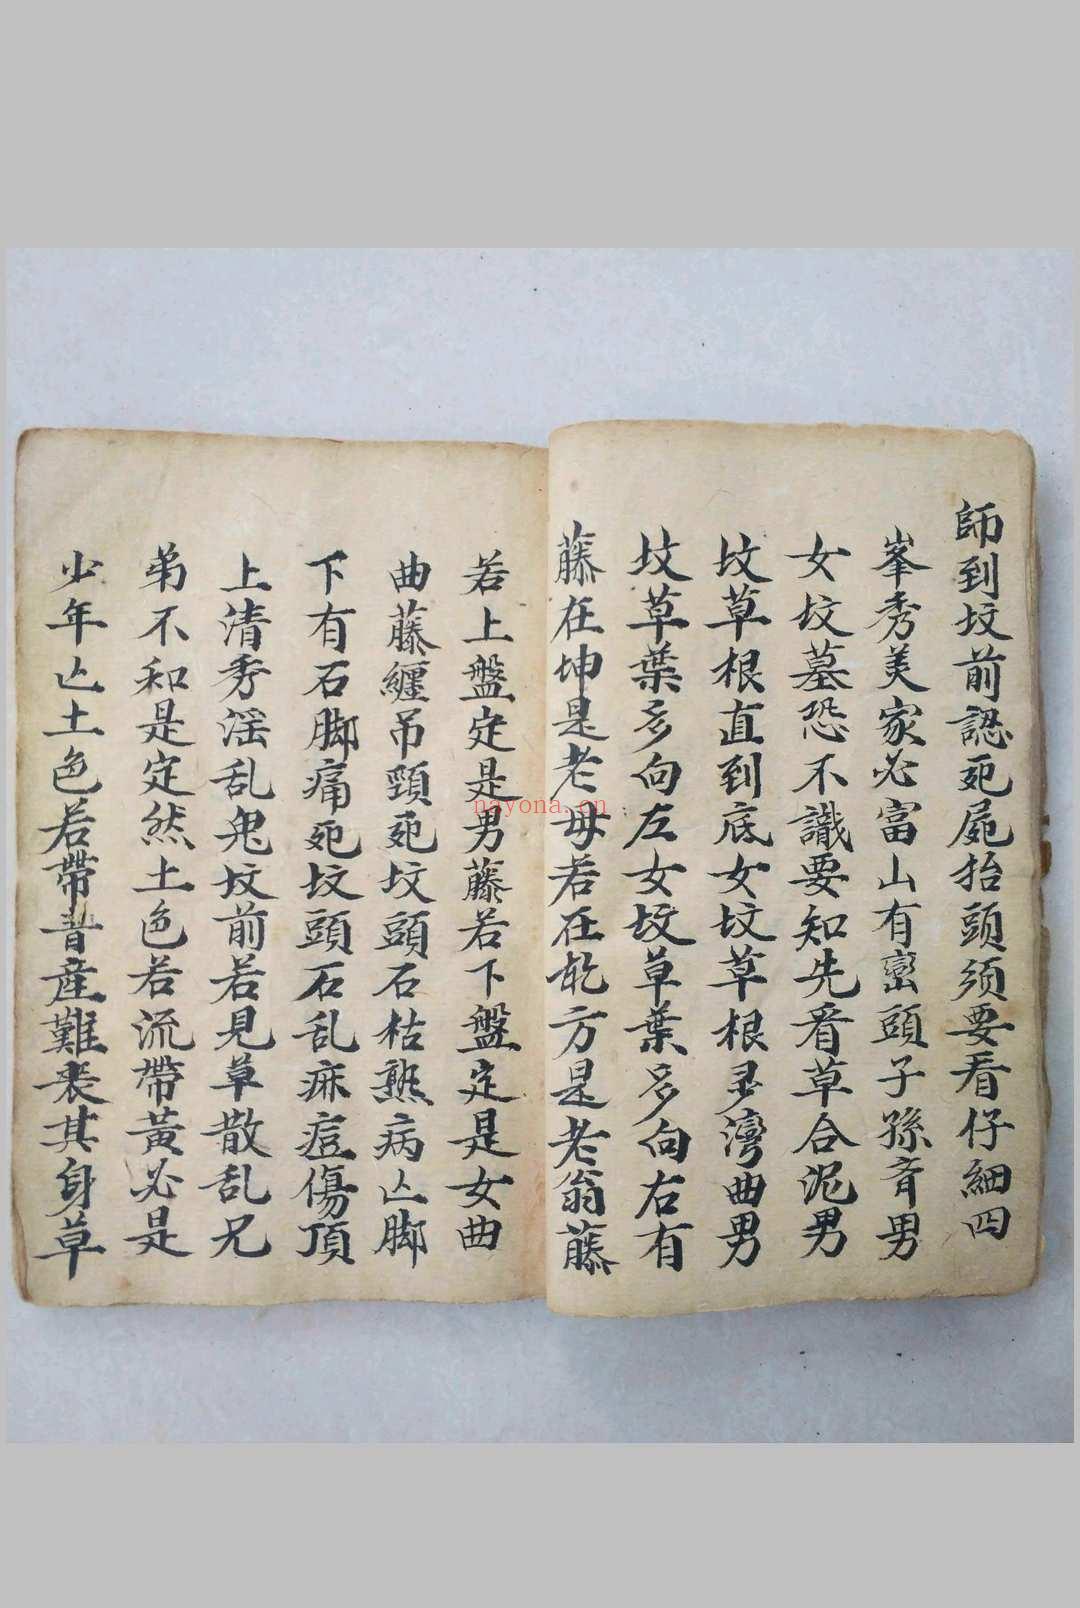 師到坟前認死屍抬頭须要看仔細四
峯秀美家必富山有巒頭子孫斉男
女坟墓恐不識要知先看草合泥男
坟草根直到底女坟草根多灣曲男
坟草葉多向左女坟草葉多向右有
藤在坤是老母若在乾方是老翁藤
若上盤定是男藤若下盤定是女曲
曲藤纏吊頸死坟頭石枯熟病亡脚
下有石脚痛死坟頭石乱麻痘傷頂
上清秀淫乱鬼坟前若見草散乱兄
弟不和是定然土色若流帶黃必是
少年亡土色若帶青産難喪其身草
nayona.cn